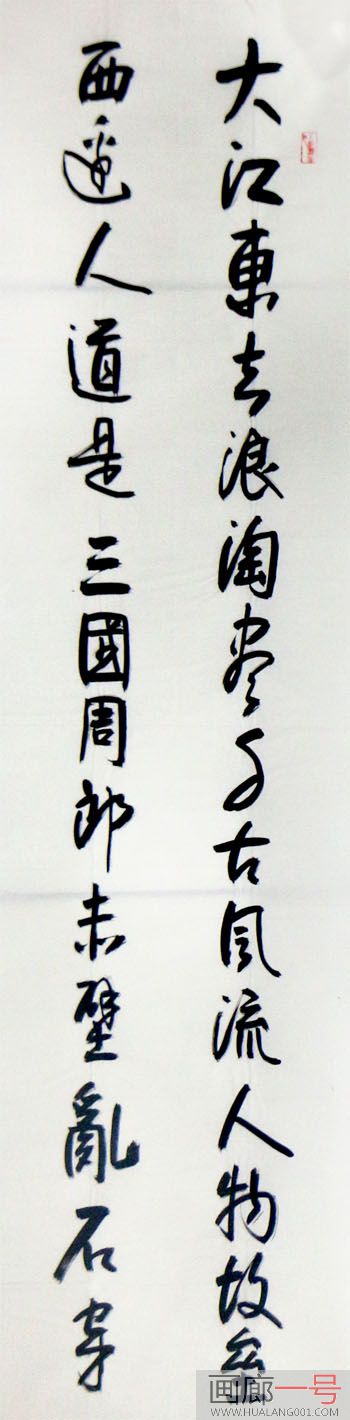 大江東去浪淘盡千古風流人物故垒
西邊人道是三國周郎赤壁亂石穿
画廊一号
WWW.HUALANG001.COM